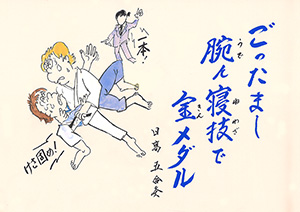 ごったまし
腕と寝技で
うで
ねわざ
金メダル
きん
日高 五合奏
一本!
けさ固め!